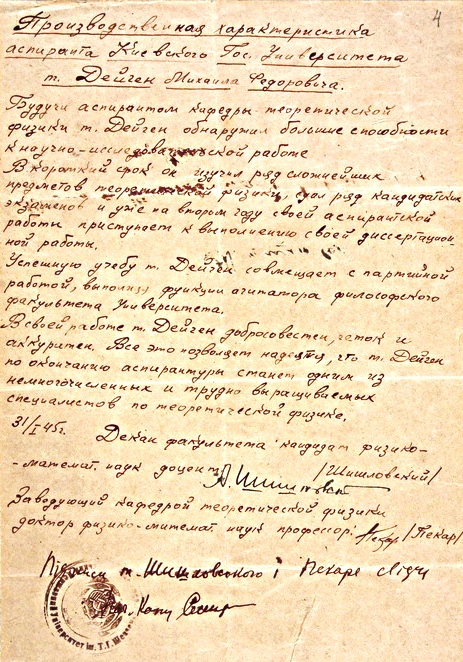 4
Производственная характеристика
аспиранта Киевского Гос. Университета
т. Дейген Михаила Федоровича.
Будучи аспирантом кафедры теоретической
физики т. Дейген обнаружил большие способности
к научно-исследовательской работе
В короткий срок он изучил ряд сложнейших
предметов теоретической физики, сдал ряд кандидатских
экзаменов и уже на втором году своей аспирантской
работы приступает к выполнению своей диссертацион-
ной работы.
Успешную учебу т. Дейген совмещает с партийной
работой, выполняя функции агитатора философского
факультета Университета.
В своей работе т. Дейген добросовестен, четок и
аккуратен. Все это позволяет надеяться, что т. Дейген
по окончанию аспирантуры станет одним из
немногочисленных и трудно выращиваемых
специалистов по теоретической физике.
31/I 45г.
Декан факультета кандидат физико-
-математ. наук доцент А. Шишловск /Шишловский/
Заведующий кафедрой теоретической физики
доктор физико-митемат. наук профессор: Пекар /Пекар/
Підписи т. Шишловського і Пекаре свідчу